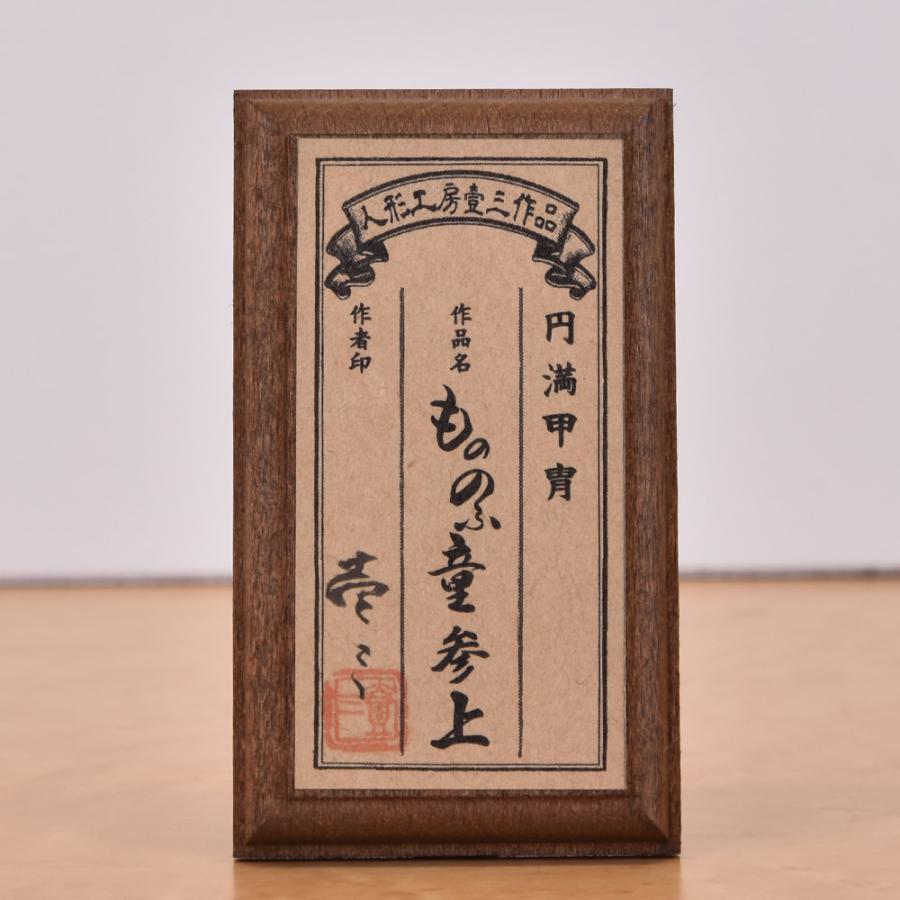 人形工房壹三作品
円満甲冑
作品名 もののふ童参上
作者印 壱三
壹三